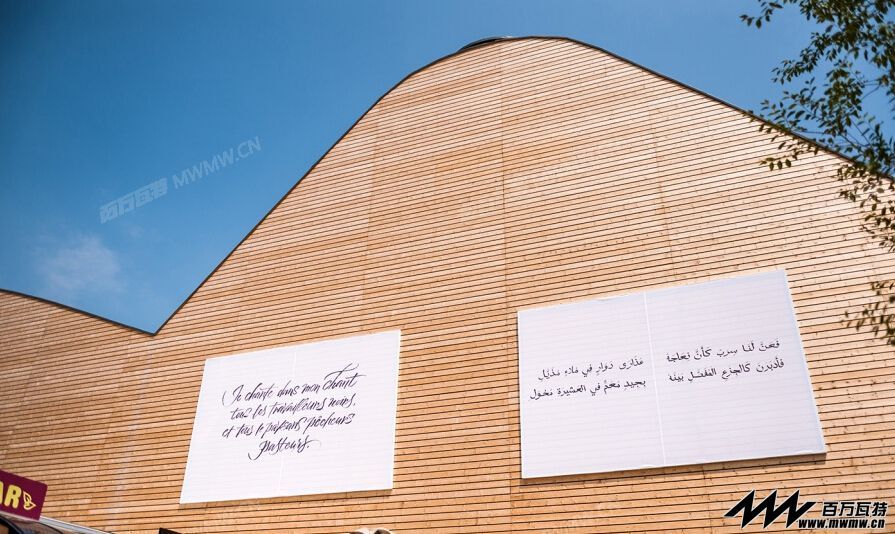 百万瓦特 MWMW.CN
Je chante dans mon chant
tous les travailleurs noirs,
et tous le paysans pêcheurs
pasteurs.
فَعَنَّ لَنَا سِربٌ كَأنَّ نِعَاجَهُ عَذَارَى دَوَارٍ في مُلاءٍ مُذَيَّلِ
فَأَدبَرنَ كَالجِزعِ المُفَصَّلِ بَينَهُ بِجِيدِ مُعَمٍّ في العَشِيرَةِ مُخوِلِ
AR
百万瓦特
www.mwmw.cn